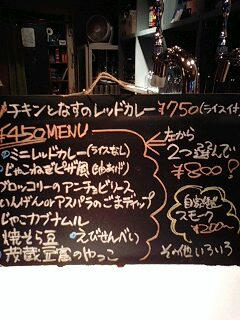 チキンとなすのレッドカレー ¥750(ライス付
¥450MENU
ミニレッドカレー(ライスなし)
じゃこねぎピザ風(油あげ)
ブロッコリーのアンチョビソース
いんげんorアスパラのごまディップ
じゃこカブナムル
焼そら豆 えびせんべい
豆腐のやっこ
左から
2つ選んで
¥800?
自家製
スモーク
¥200~
その他いろいろ